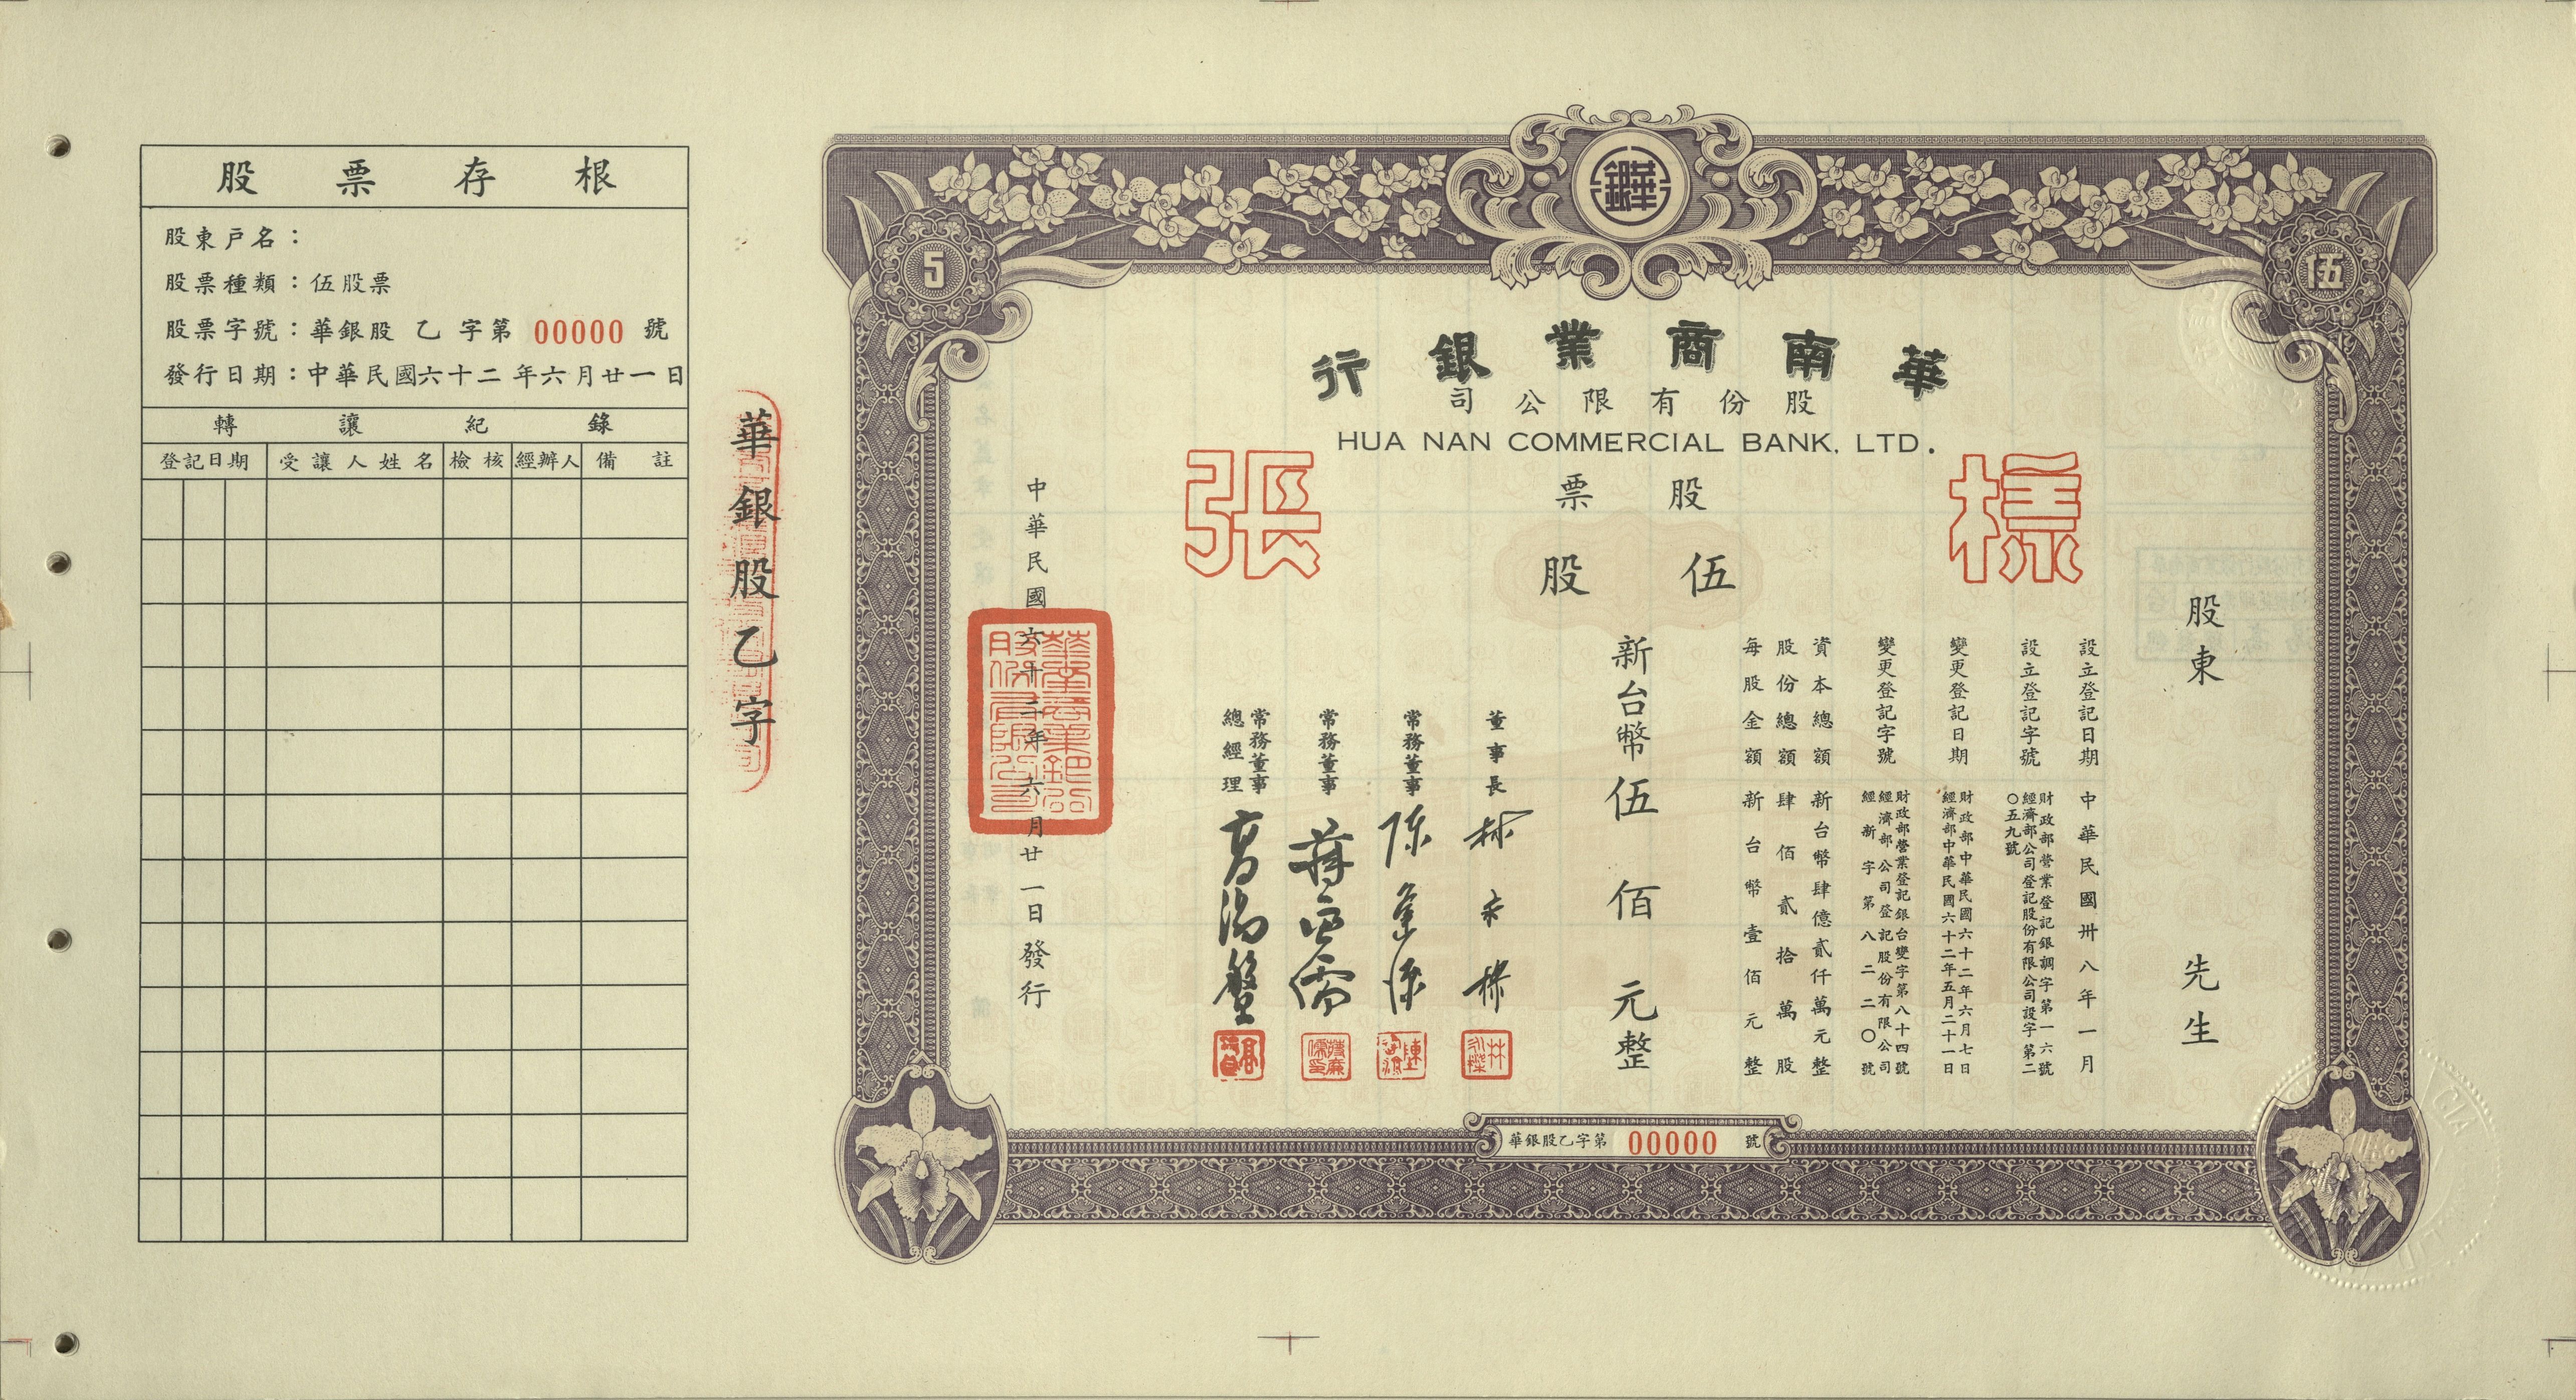 股票存根
股東戶名：
股票種類：伍股票
股票字號：華銀股 乙 字第 00000 號
發行日期：中華民國六十二年六月廿一日
轉讓紀錄
登記日期 受讓人姓名 檢核 經辦人 備註
華銀股乙字
華銀
5
伍
華南商業銀行
股份有限公司
HUA NAN COMMERCIAL BANK, LTD.
樣張
股票
伍股
股東 先生
設立登記日期 中華民國卅八年一月
設立登記字號 財政部營業登記銀調字第一六號
經濟部公司登記股份有限公司設字第二
〇五九號
變更登記日期 財政部中華民國六十二年六月七日
經濟部中華民國六十二年五月二十一日
變更登記字號 財政部營業登記銀台變字第八十四號
經濟部公司登記股份有限公司
經新字第八二二〇號
資本總額 新台幣肆億貳仟萬元整
股份總額 肆佰貳拾萬股
每股金額 新台幣壹佰元整
新台幣伍佰元整
董事長
常務董事
常務董事
常務董事
總經理
中華民國六十二年六月廿一日發行
華銀股乙字第 00000 號